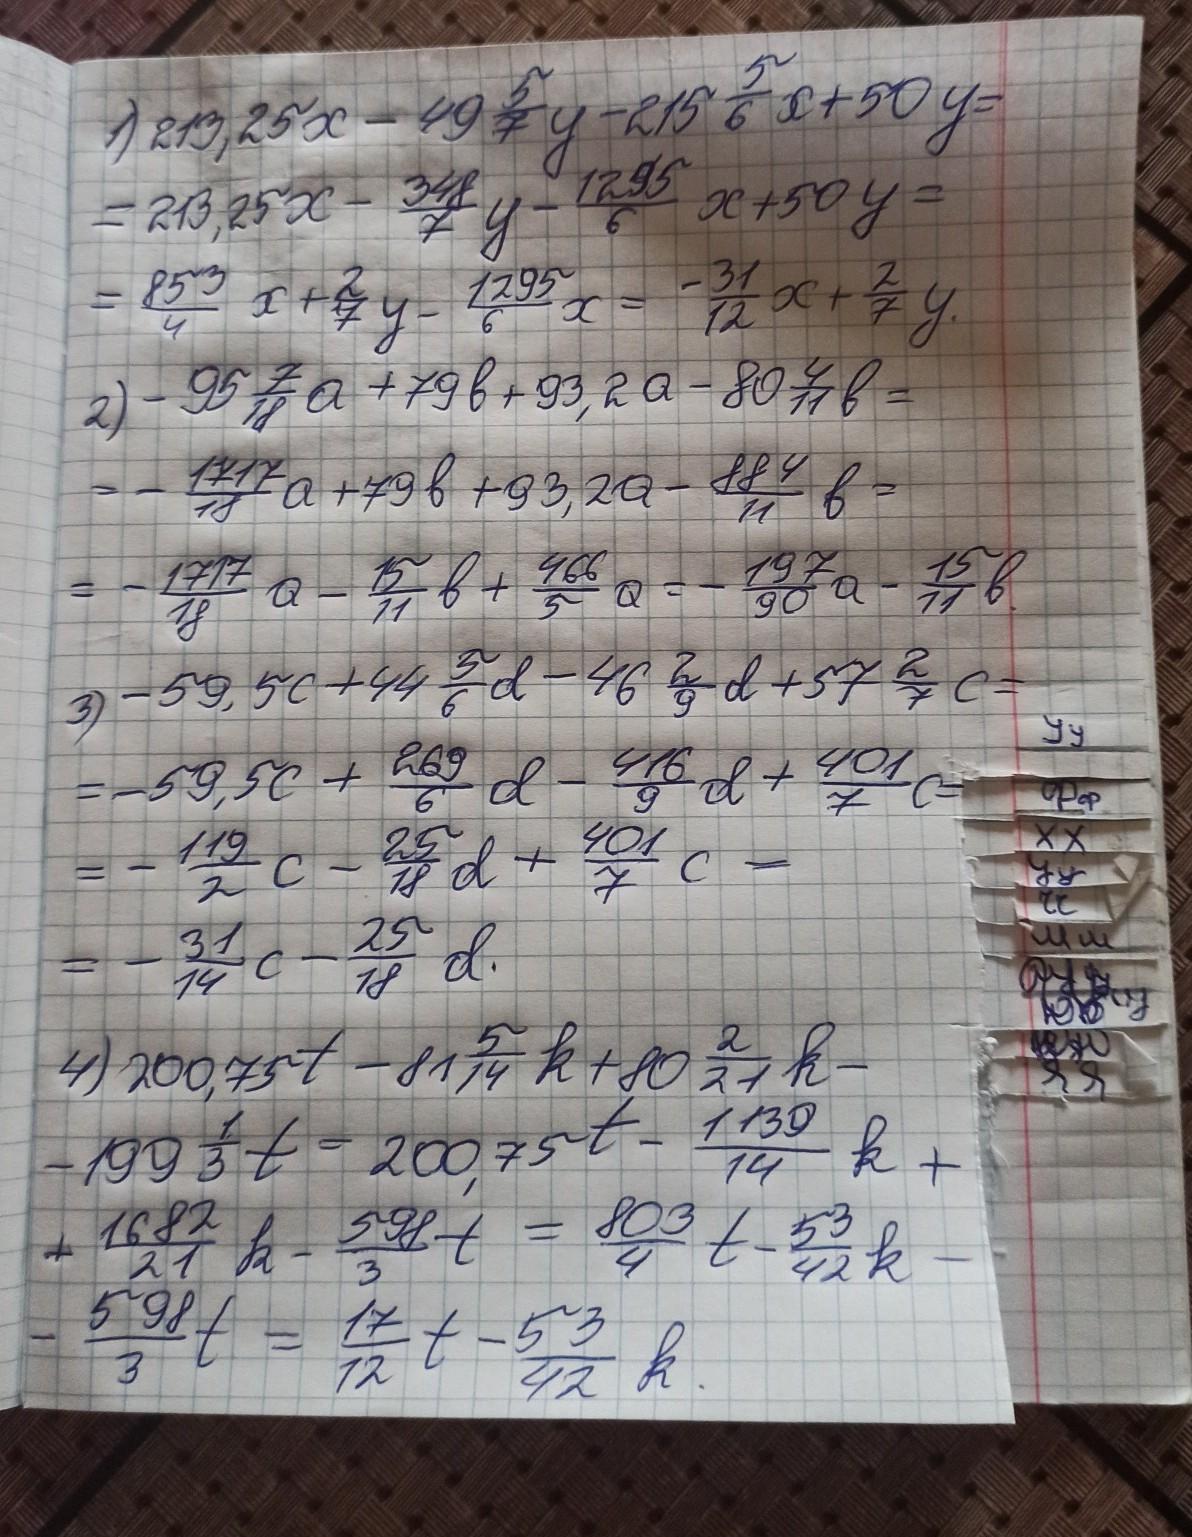 1) 213,25x - 49 5/7 y - 215 5/6 x + 50y =
= 213,25x - 348/7 y - 1295/6 x + 50y =
= 853/4 x + 2/7 y - 1295/6 x = -31/12 x + 2/7 y.
2) - 95 7/18 a + 79b + 93,2a - 80 4/11 b =
= - 1717/18 a + 79b + 93,2a - 884/11 b =
= - 1717/18 a - 15/11 b + 466/5 a = - 197/90 a - 15/11 b.
3) - 59,5c + 44 5/6 d - 46 2/9 d + 57 2/7 c =
= - 59,5c + 269/6 d - 416/9 d + 401/7 c =
= - 119/2 c - 25/18 d + 401/7 c =
= - 31/14 c - 25/18 d.
4) 200,75t - 81 5/14 k + 80 2/21 k -
- 199 1/3 t = 200,75t - 1139/14 k +
+ 1682/21 k - 598/3 t = 803/4 t - 53/42 k -
- 598/3 t = 17/12 t - 53/42 k.
Уу
Фф
Хх